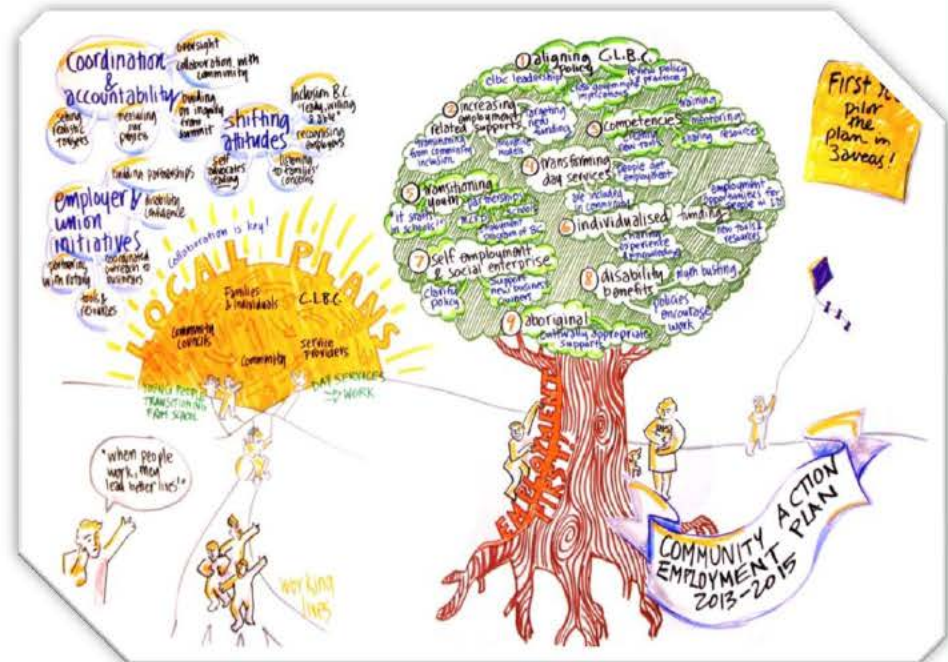 Coordination
&
accountability
oversight
collaboration with
community
setting
realistic
targets
measuring
our
progress
building
on inquiry
from
summit
shifting
attitudes
Inclusion B.C.
"ready, willing
& able"
recognising
employers
self
advocates
leading
listening
to families'
concerns
employer &
union
initiatives
building partnerships
disability
confidence
partnering
with rotary
coordinated
outreach to
businesses
tools &
resources
Collaboration is key!
LOCAL PLANS
Families
& individuals
C.L.B.C.
Community
councils
Community
Service
Providers
YOUNG PEOPLE
TRANSITIONING
FROM SCHOOL
DAY SERVICES
→ WORK
"when people
work, they
lead better lives!"
working
lives
① aligning C.L.B.C.
policy
clbc leadership
review policy
& practice
cross government
implications
② increasing
employment
related supports
targeting
new
funding
transitioning
from community
inclusion
models
③ competencies
training
mentoring
new tools
sharing resources
④ transforming
day services
people get
employment
are included
in community
⑤ transitioning
youth
it starts
in schools
partnership
schools
⑥ individualised
funding
employment
opportunities for
people
new tools &
resources
sharing
experience
⑦ self employment
& social enterprise
clarify
policy
support
new business
owners
⑧ disability
benefits
myth busting
policies
encourage
work
⑨ aboriginal
culturally appropriate
supports
EMPLOYMENT
FIRST!
First
pilot
the
plan in
3 areas!
COMMUNITY ACTION
EMPLOYMENT PLAN
2013-2015